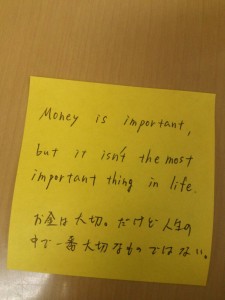 Money is important,
but it isn't the most
important thing in life.
お金は大切。だけど人生の
中で一番大切なものではない。